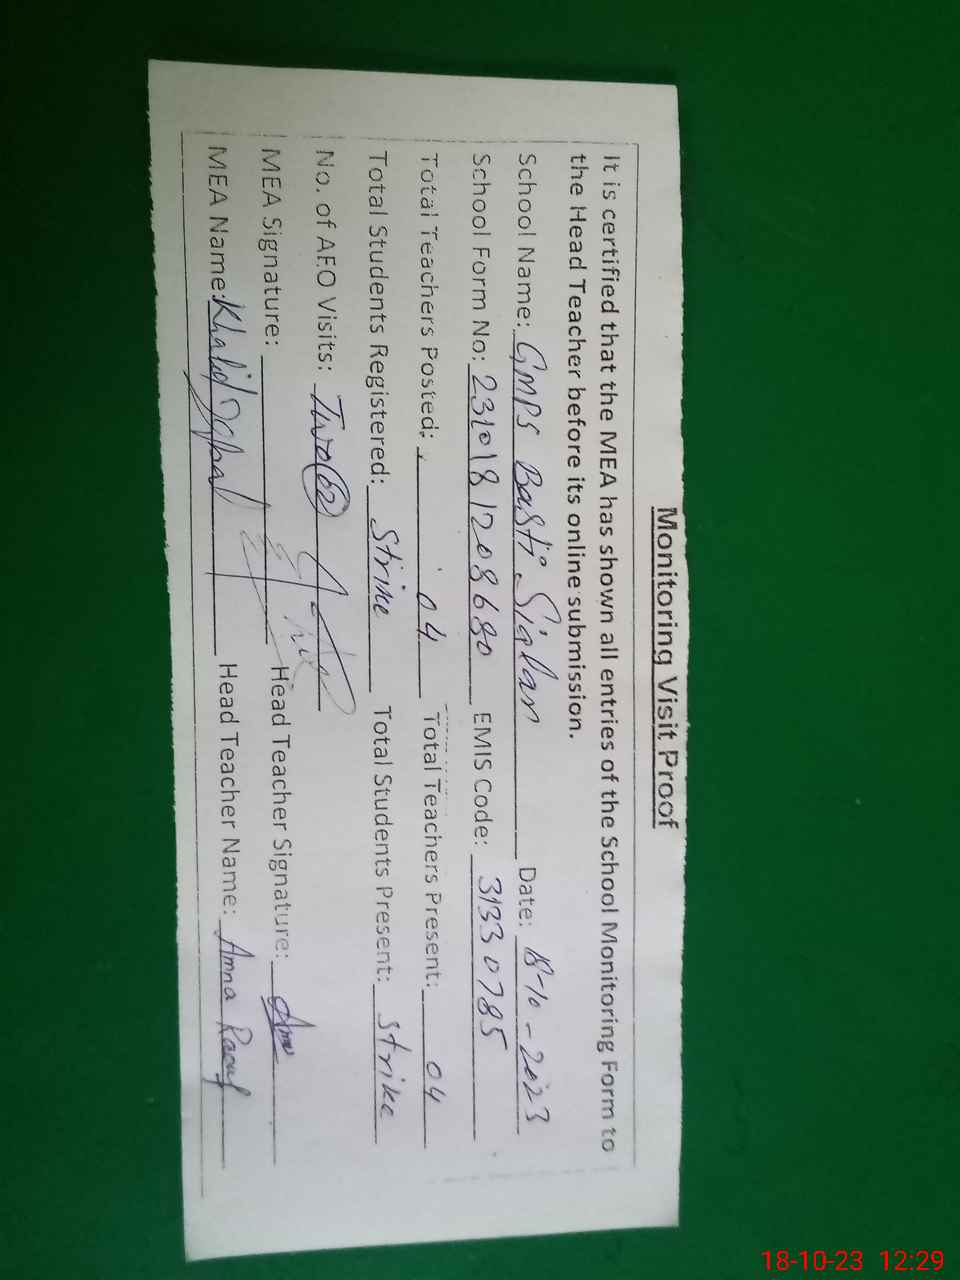 Monitoring Visit Proof
It is certified that the MEA has shown all entries of the School Monitoring Form to
the Head Teacher before its online submission.
School Name: GMPS Basti Sialan Date: 18-10-2023
School Form No: 2310181208680 EMIS Code: 31330785
Total Teachers Posted: 04 Total Teachers Present: 04
Total Students Registered: Strike Total Students Present: Strike
No. of AEO Visits: Two (02)
MEA Signature: Head Teacher Signature:
MEA Name: Khalid Iqbal Head Teacher Name: Amna Raouf
18-10-23 12:29